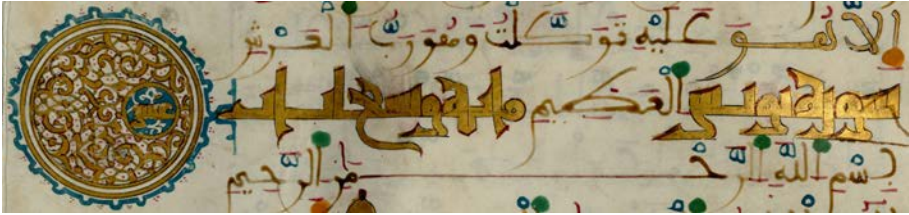 إلا هو عليه توكلت وهو رب العرش
سورة يونس العظيم مايه وتسع ايات
بسم الله الرحمن الرحيم